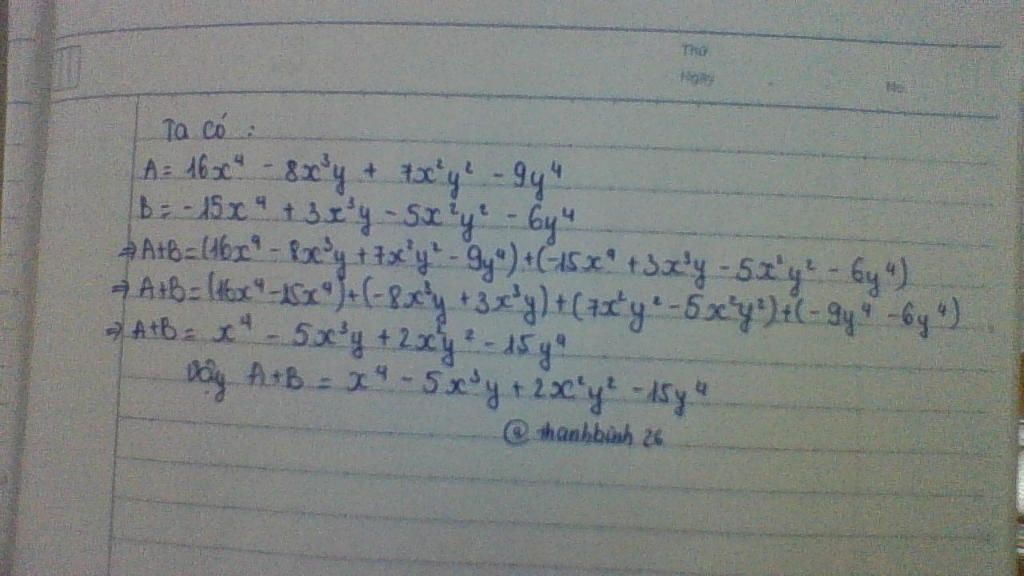 Thứ
Ngày
No
Ta có :
A = 16x⁴ - 8x³y + 7x²y² - 9y⁴
B = -15x⁴ + 3x³y - 5x²y² - 6y⁴
⇒ A+B = (16x⁴ - 8x³y + 7x²y² - 9y⁴) + (-15x⁴ + 3x³y - 5x²y² - 6y⁴)
⇒ A+B = (16x⁴ - 15x⁴) + (-8x³y + 3x³y) + (7x²y² - 5x²y²) + (-9y⁴ - 6y⁴)
⇒ A+B = x⁴ - 5x³y + 2x²y² - 15y⁴
Vậy A+B = x⁴ - 5x³y + 2x²y² - 15y⁴
@thanhbinh 26